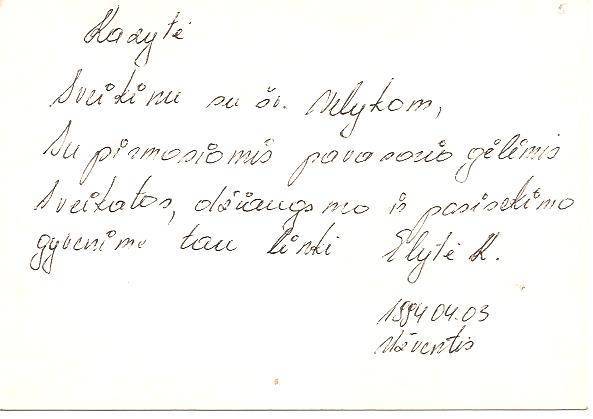 Kazytė
Sveikinu su šv. Velykom,
Su pirmosiomis pavasario gėlėmis
Sveikatos, džiaugsmo ir pasisekimo
gyvenime tau linki Elytė K.
1994 04.03
Užventis